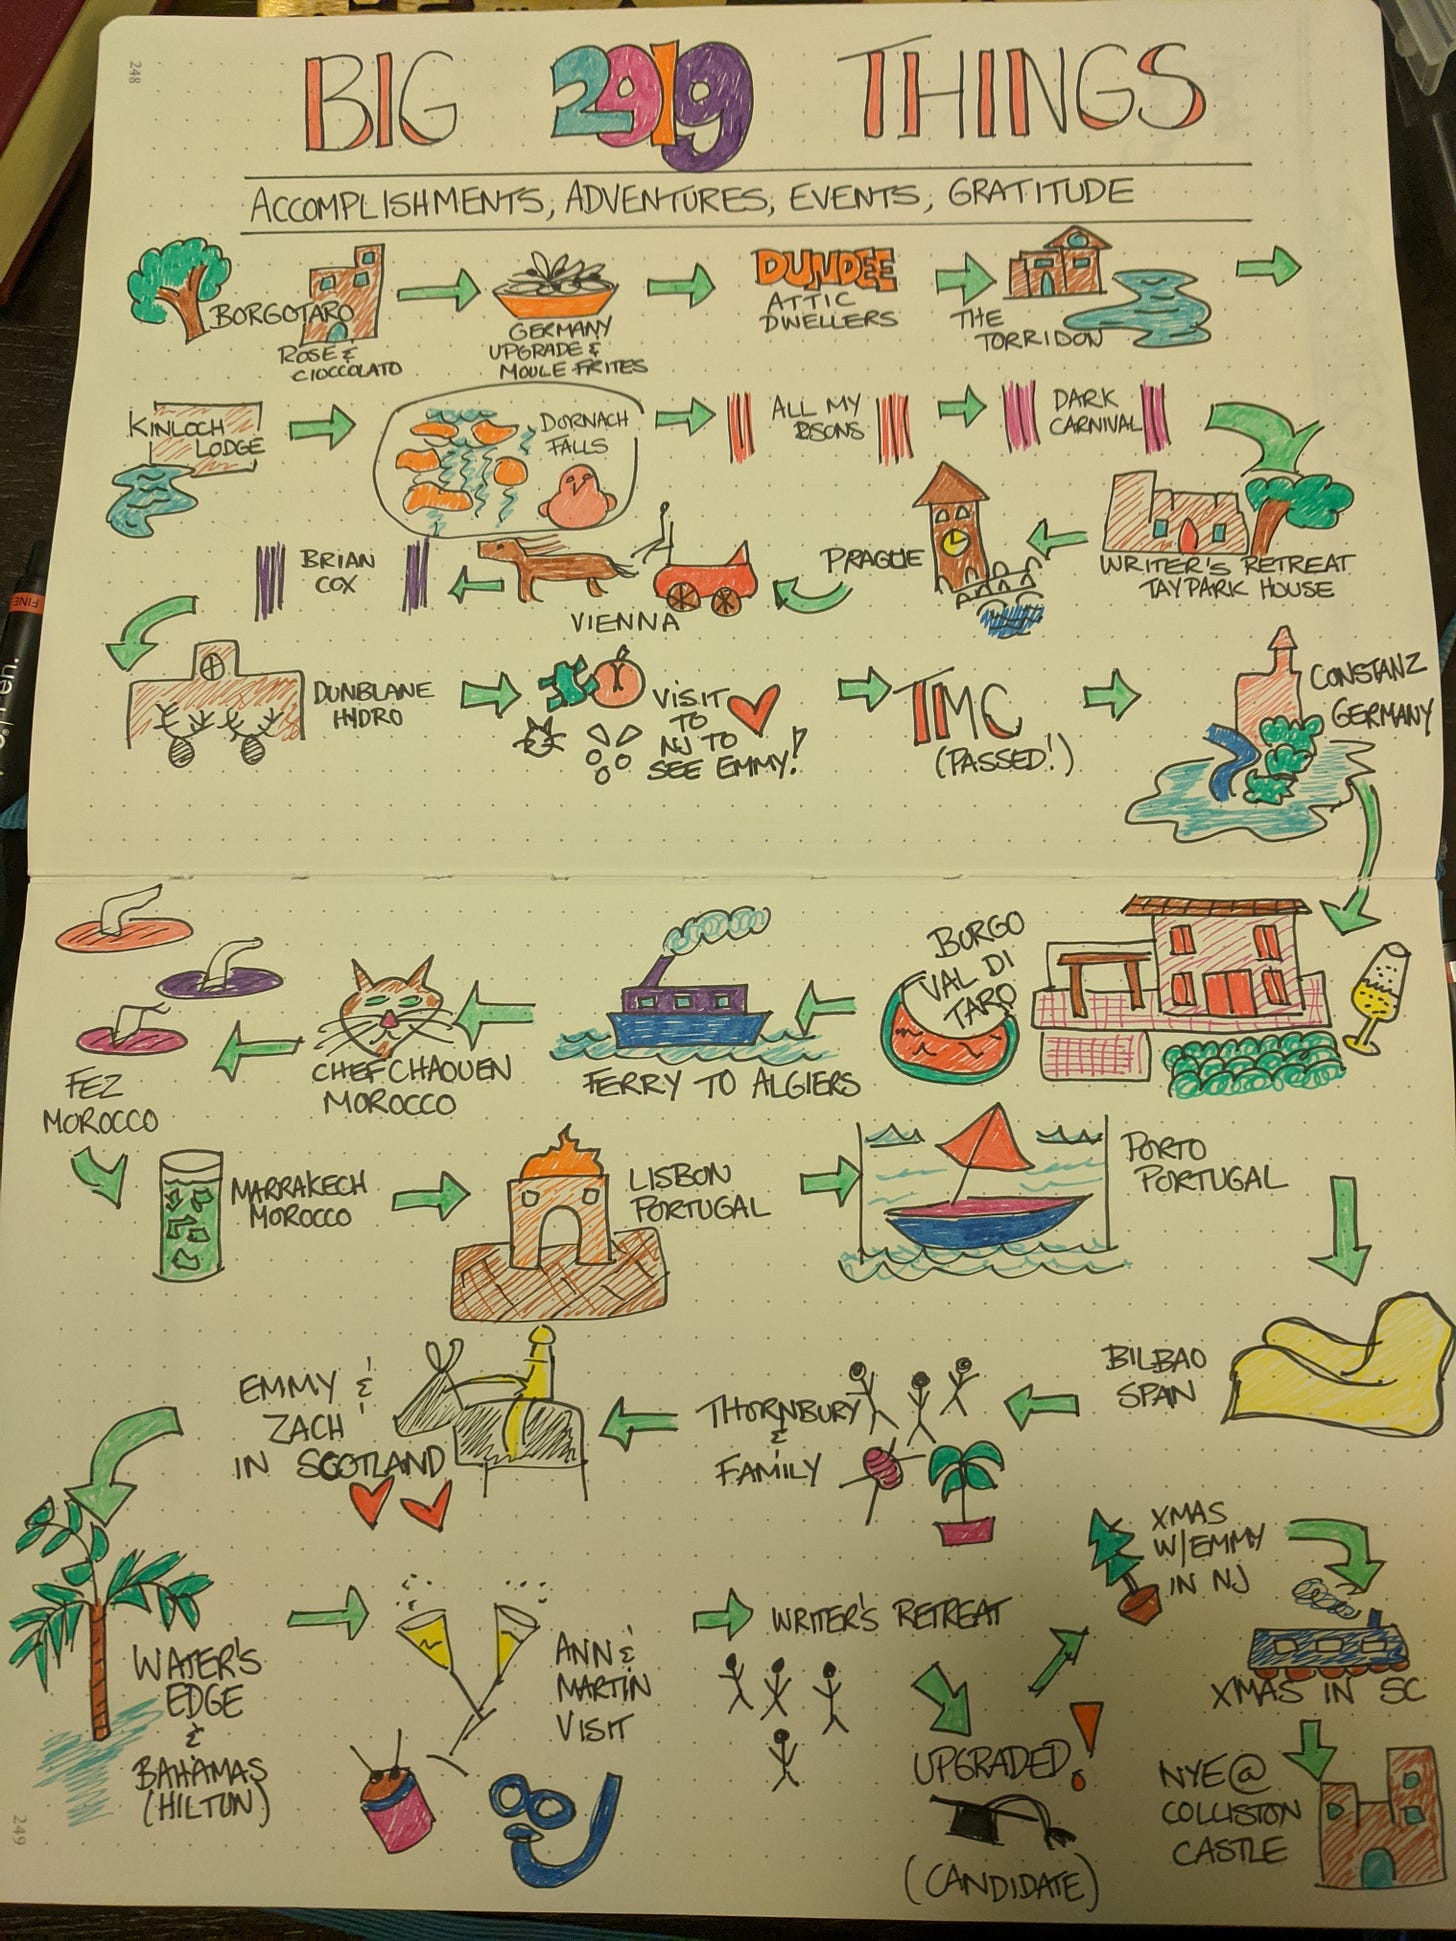 248
BIG 2019 THINGS
ACCOMPLISHMENTS, ADVENTURES, EVENTS, GRATITUDE
BORGOTARO
ROSE &
CIOCCOLATO
GERMANY
UPGRADE &
MOULE FRITES
DUNDEE
ATTIC
DWELLERS
THE
TORRIDON
KINLOCH
LODGE
DORNACH
FALLS
ALL MY
SONS
DARK
CARNIVAL
WRITER'S RETREAT
TAYPARK HOUSE
PRAGUE
VIENNA
BRIAN
COX
DUNBLANE
HYDRO
VISIT
TO
NJ TO
SEE EMMY!
TMC
(PASSED!)
CONSTANZ
GERMANY
BORGO
VAL DI
TARO
FERRY TO ALGIERS
CHEFCHAOUEN
MOROCCO
FEZ
MOROCCO
MARRAKECH
MOROCCO
LISBON
PORTUGAL
PORTO
PORTUGAL
BILBAO
SPAN
THORNBURY
&
FAMILY
EMMY &
ZACH
IN SCOTLAND
WATER'S
EDGE
&
BAHAMAS
(HILTON)
ANN &
MARTIN
VISIT
WRITER'S RETREAT
UPGRADED!
(CANDIDATE)
XMAS
W/EMMY
IN NJ
XMAS IN SC
NYE @
COLLISTON
CASTLE
249
FINE